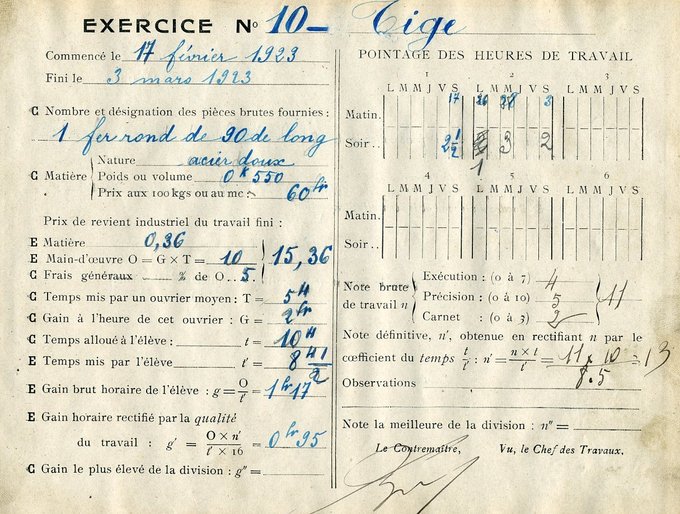 EXERCICE No 10 — Tige
Commencé le 17 février 1923
Fini le 3 mars 1923
C Nombre et désignation des pièces brutes fournies :
1 fer rond de 90 de long
Nature acier doux
C Matière Poids ou volume 0k 550
Prix aux 100 kgs ou au mc : 60fr
Prix de revient industriel du travail fini :
E Matière 0,36
E Main-d'œuvre O = G × T = 10 15,36
C Frais généraux % de O... 5
C Temps mis par un ouvrier moyen : T = 5H
C Gain à l'heure de cet ouvrier : G = 2fr
C Temps alloué à l'élève : t = 10H
E Temps mis par l'élève t' = 8H 1/2
E Gain brut horaire de l'élève : g = O/t' = 1fr 17
E Gain horaire rectifié par la qualité
du travail : g' = O × n' / t' × 16 = 0fr 95
C Gain le plus élevé de la division : g" =
POINTAGE DES HEURES DE TRAVAIL
1 2 3
L M M J V S L M M J V S L M M J V S
17 3
Matin.
Soir .. 2 1/2 3 2
1
4 5 6
L M M J V S L M M J V S L M M J V S
Matin.
Soir ..
Note brute de travail n
Exécution : (0 à 7) 4
Précision : (0 à 10) 5
Carnet : (0 à 3) 2
11
Note définitive, n', obtenue en rectifiant n par le
cœfficient du temps t/t' : n' = n × t / t' = 11 × 10 / 8.5 = 13
Observations
Note la meilleure de la division : n" =
Le Contremaître, Vu, le Chef des Travaux.